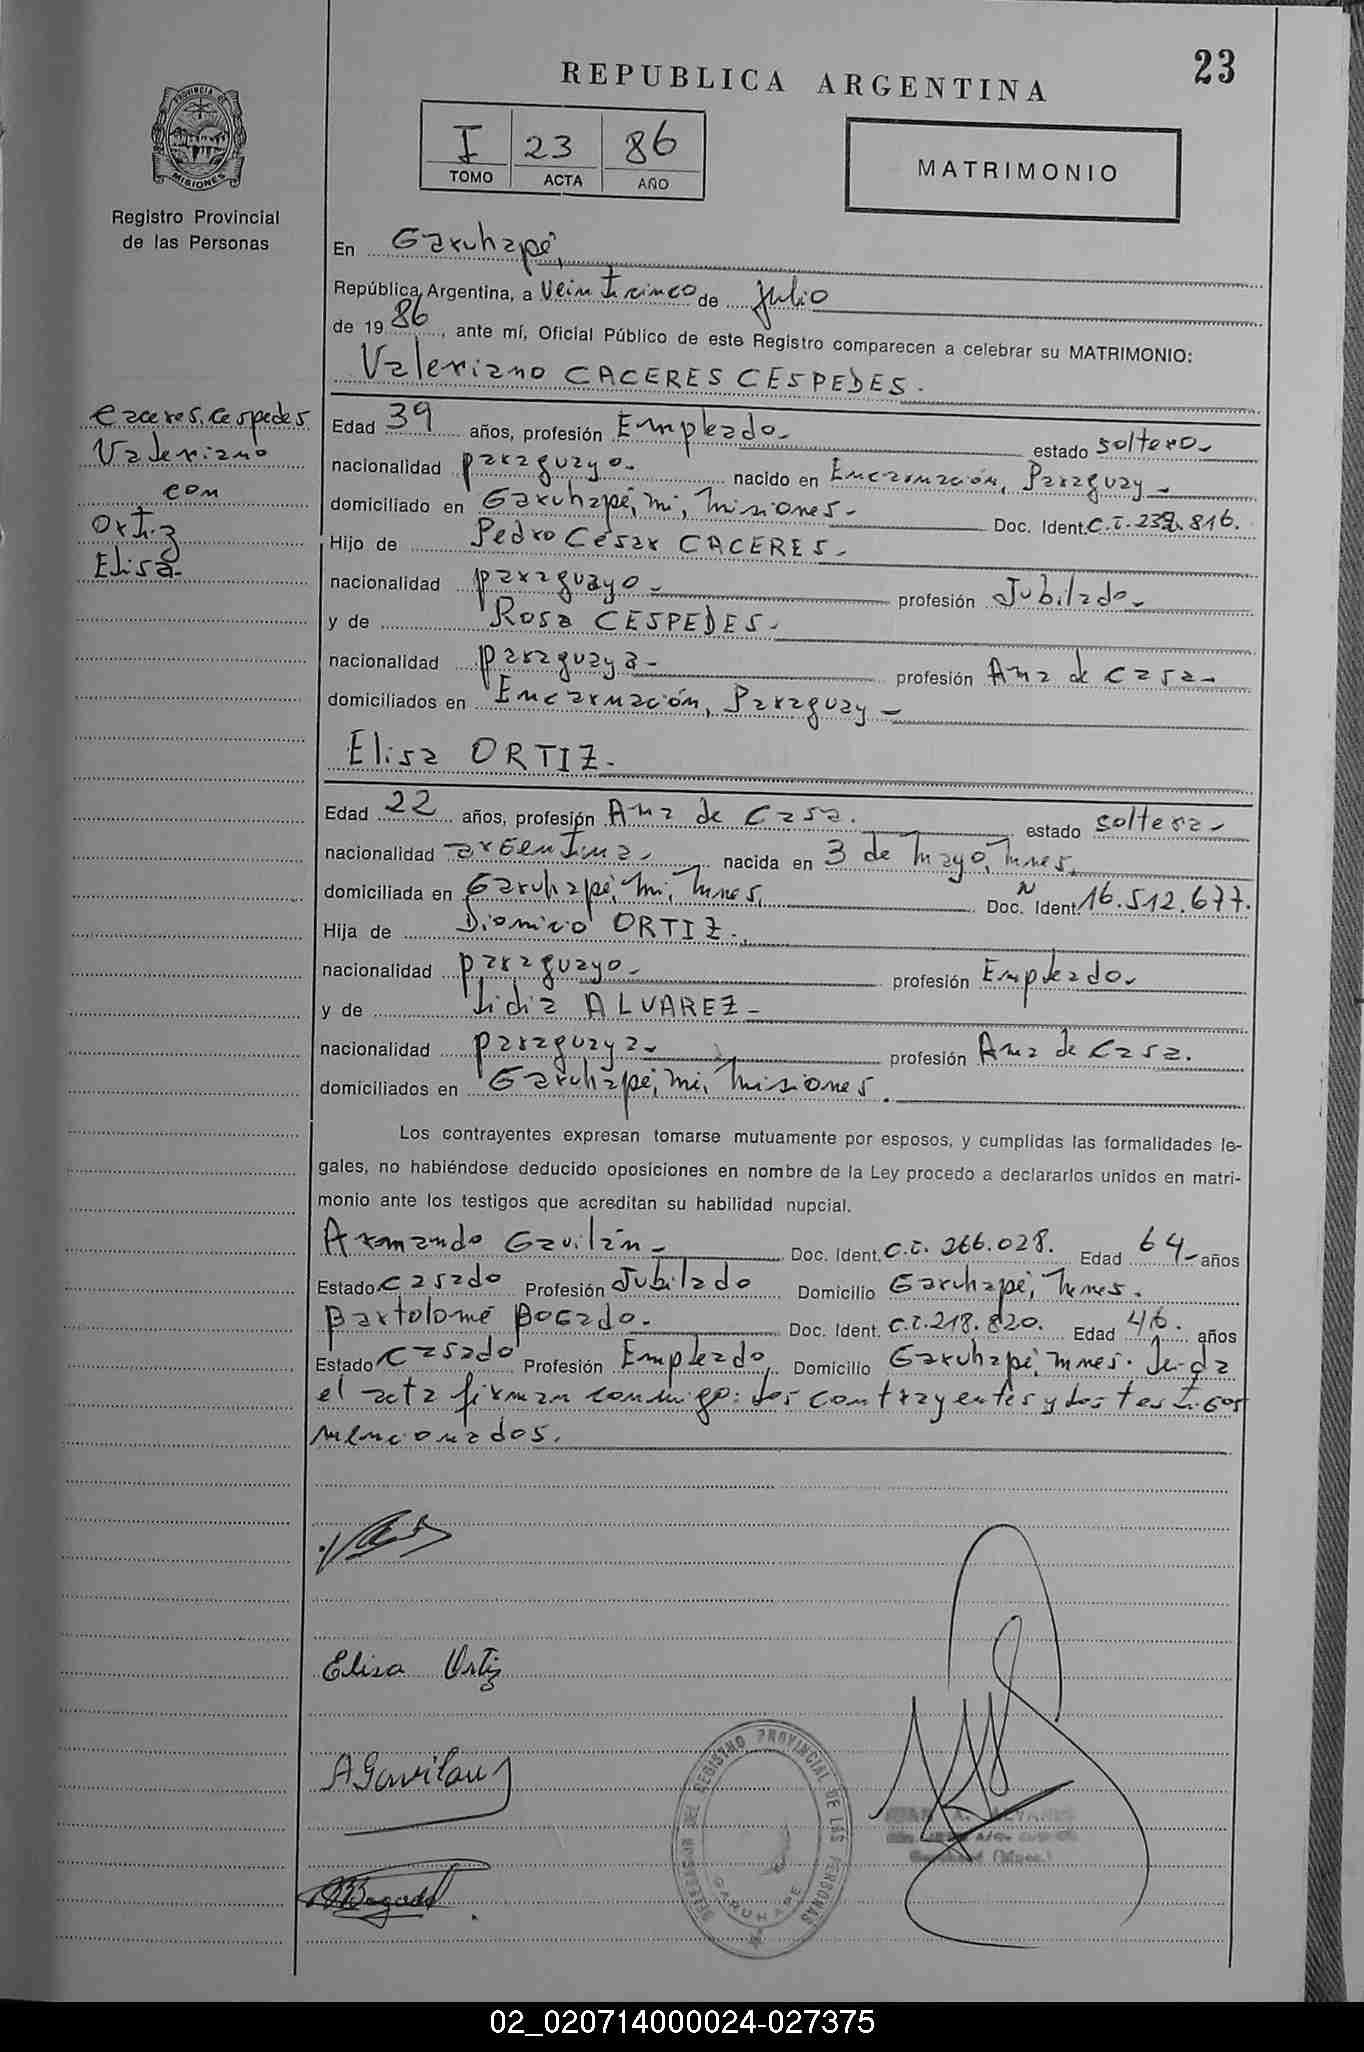 23
REPUBLICA ARGENTINA
I 23 86
TOMO ACTA AÑO
MATRIMONIO
PROVINCIA DE
MISIONES
Registro Provincial
de las Personas
En Garuhapé,
República Argentina, a veinticinco de Julio
de 1986, ante mí, Oficial Público de este Registro comparecen a celebrar su MATRIMONIO:
Valeriano CACERES CESPEDES.
Caceres Cespedes
Valeriano
con
Ortiz
Elisa-
Edad 39 años, profesión Empleado- estado soltero-
nacionalidad paraguayo- nacido en Encarnación, Paraguay-
domiciliado en Garuhapé, mi, Misiones- Doc. Ident. C.I. 816.
Hijo de Pedro César CACERES-
nacionalidad paraguayo- profesión Jubilado-
y de Rosa CESPEDES-
nacionalidad paraguaya- profesión Ama de Casa-
domiciliados en Encarnación, Paraguay-
Elisa ORTIZ-
Edad 22 años, profesión Ama de Casa. estado soltera-
nacionalidad argentina- nacida en 3 de Mayo, Mnes,
domiciliada en Garuhapé, mi, Mnes, Doc. Ident. 16.512.677.
Hija de Dionicio ORTIZ-
nacionalidad paraguayo- profesión Empleado-
y de Lidia ALVAREZ-
nacionalidad paraguaya- profesión Ama de Casa.
domiciliados en Garuhapé, mi, Misiones.
Los contrayentes expresan tomarse mutuamente por esposos, y cumplidas las formalidades le-
gales, no habiéndose deducido oposiciones en nombre de la Ley procedo a declararlos unidos en matri-
monio ante los testigos que acreditan su habilidad nupcial.
Armando Gavilán- Doc. Ident. C.I. 266.028. Edad 64- años
Estado Casado Profesión Jubilado Domicilio Garuhapé, Mnes.
Bartolomé Bogado. Doc. Ident. C.I. 218.820. Edad 46. años
Estado Casado Profesión Empleado, Domicilio Garuhapé, Mnes. Leida
el acta firman conmigo: los contrayentes y los testigos
mencionados.
Elisa Ortiz
A Gavilan
Bogado
DEL REGISTRO PROVINCIAL DE LAS PERSONAS
GARUHAPE
02_020714000024-027375